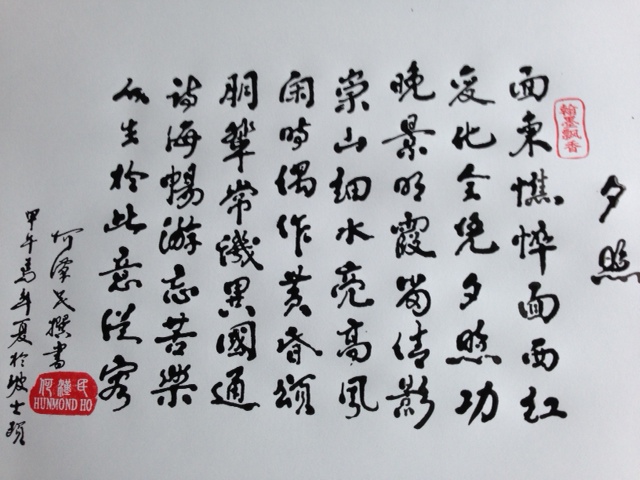 夕照
翰墨飘香
面東憔悴面西红
变化全凭夕照功
晚景明霞留倩影
崇山细水亮高風
闲時偶作黄昏頌
朋輩常譏異國通
詩海暢游忘苦樂
生於此意從容
何澤民撰書
甲午馬年夏於波士頓
何澤民
HUNMOND HO